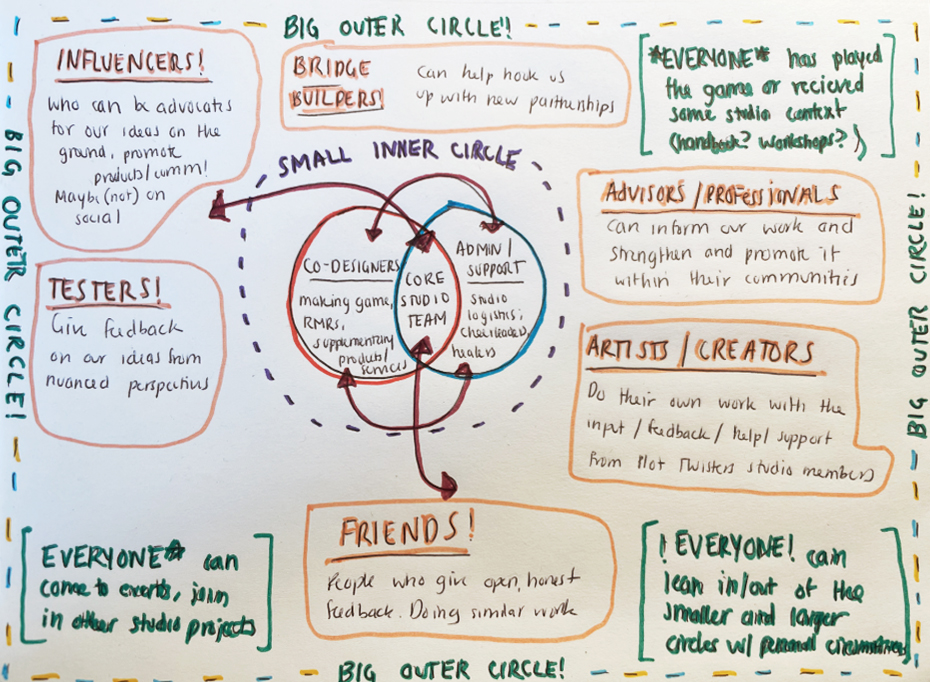 BIG OUTER CIRCLE!!
INFLUENCERS!
who can be advocates
for our ideas on the
ground, promote
products/comm!
Maybe (not) on
social
BRIDGE
BUILDERS!
Can help hook us
up with new partnerships
*EVERYONE* has played
the game or recieved
some studio context
(handbook? workshops?)
BIG OUTER CIRCLE!
SMALL INNER CIRCLE
ADVISORS/PROFESSIONALS
Can inform our work and
strengthen and promote it
within their communities
CO-DESIGNERS
making game,
RMRs,
supplementary
products/
services
CORE
STUDIO
TEAM
ADMIN/
SUPPORT
studio
logistics,
cheerleaders,
healers
TESTERS!
Give feedback
on our ideas from
nuanced perspectives
ARTISTS/CREATORS
Do their own work with the
input/feedback/help/support
from Plot Twisters studio members
BIG OUTER CIRCLE!
FRIENDS!
People who give open, honest
feedback. Doing similar work
EVERYONE* can
come to events, join
in other studio projects
! EVERYONE! can
lean in/out of the
smaller and larger
circles w/ personal circumstances
BIG OUTER CIRCLE!